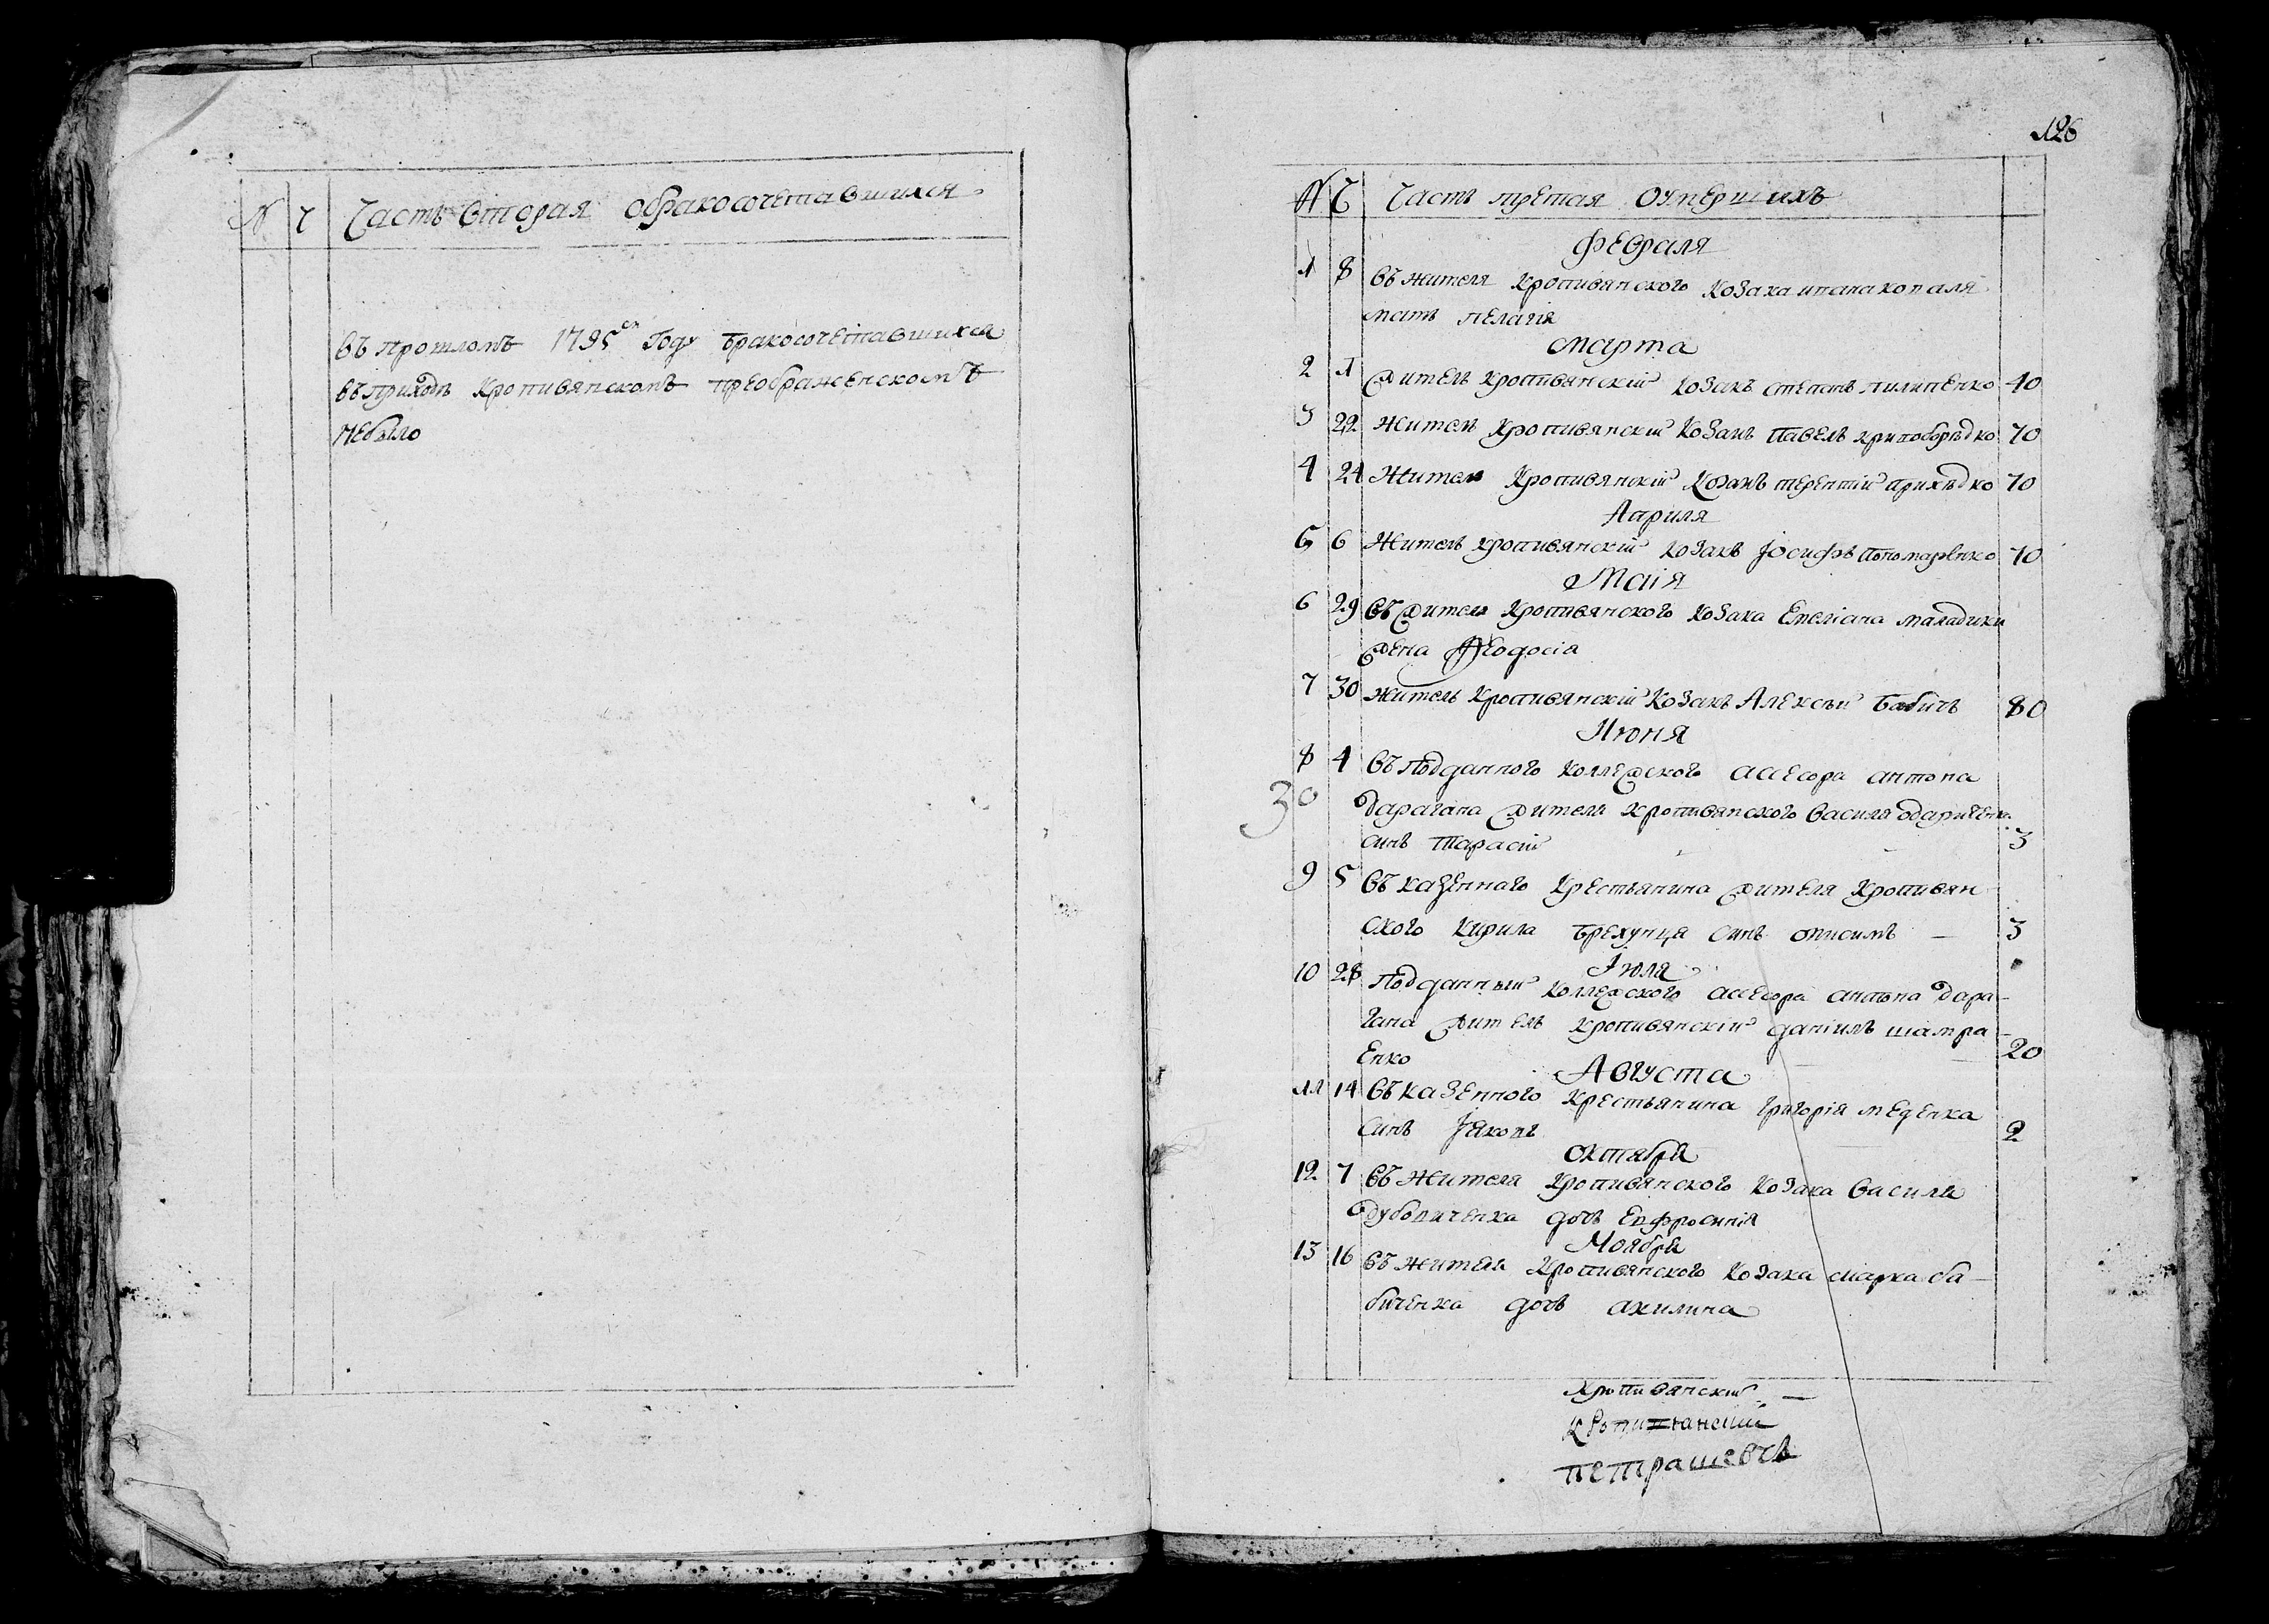 N Ч Часть вторая обракосочетавшихся
въ прошломъ 1795ом Году бракосочетавшихся
въ приходѣ Кропивянскомъ преображенскомъ
небыло
126
N Ч Часть третая оумершихъ
Февраля
1 8 въ жителя Кропивянского Козака
мать пелагія
Марта
2 1 житель кропивянскій козакъ степанъ пилипенко 40
3 22 житель Кропивянскій Козакъ Павелъ 70
4 24 Житель Кропивянскій Козакъ терентій прихѣдко 70
Априля
5 6 Житель кропивянскій козакъ Іосифъ Пономаренко 70
Маія
6 29 въ жителя Кропивянского Козака Емеліана маладики
жена Ѳеодосіа
7 30 житель Кропивянскій Козакъ Алексѣй Бабичъ 80
Июня
8 4 въ подданного коллежского ассесора антона
30
дарагана жителя кропивянского василя одариченка
синъ Тарасій 3
9 5 въ казенного Крестьянина жителя Кропивян
ского Кирила Брехунця синъ онисимъ 3
Іюля
10 28 подданный коллежского ассесора антона Дара-
гана житель кропивянскій даніилъ шамра-
енко 20
Августа
11 14 въ казенного Крестьянина григорія меденка
синъ Іяковъ 2
октября
12 7 въ жителя Кропивянского Козака василя
дубовиченка дочь Евфросинія
Ноября
13 16 въ жителя Кропивянского Козака марка ба-
биченка дочь акилина
Кропивянскій
Кропивянскій
петрашевчъ